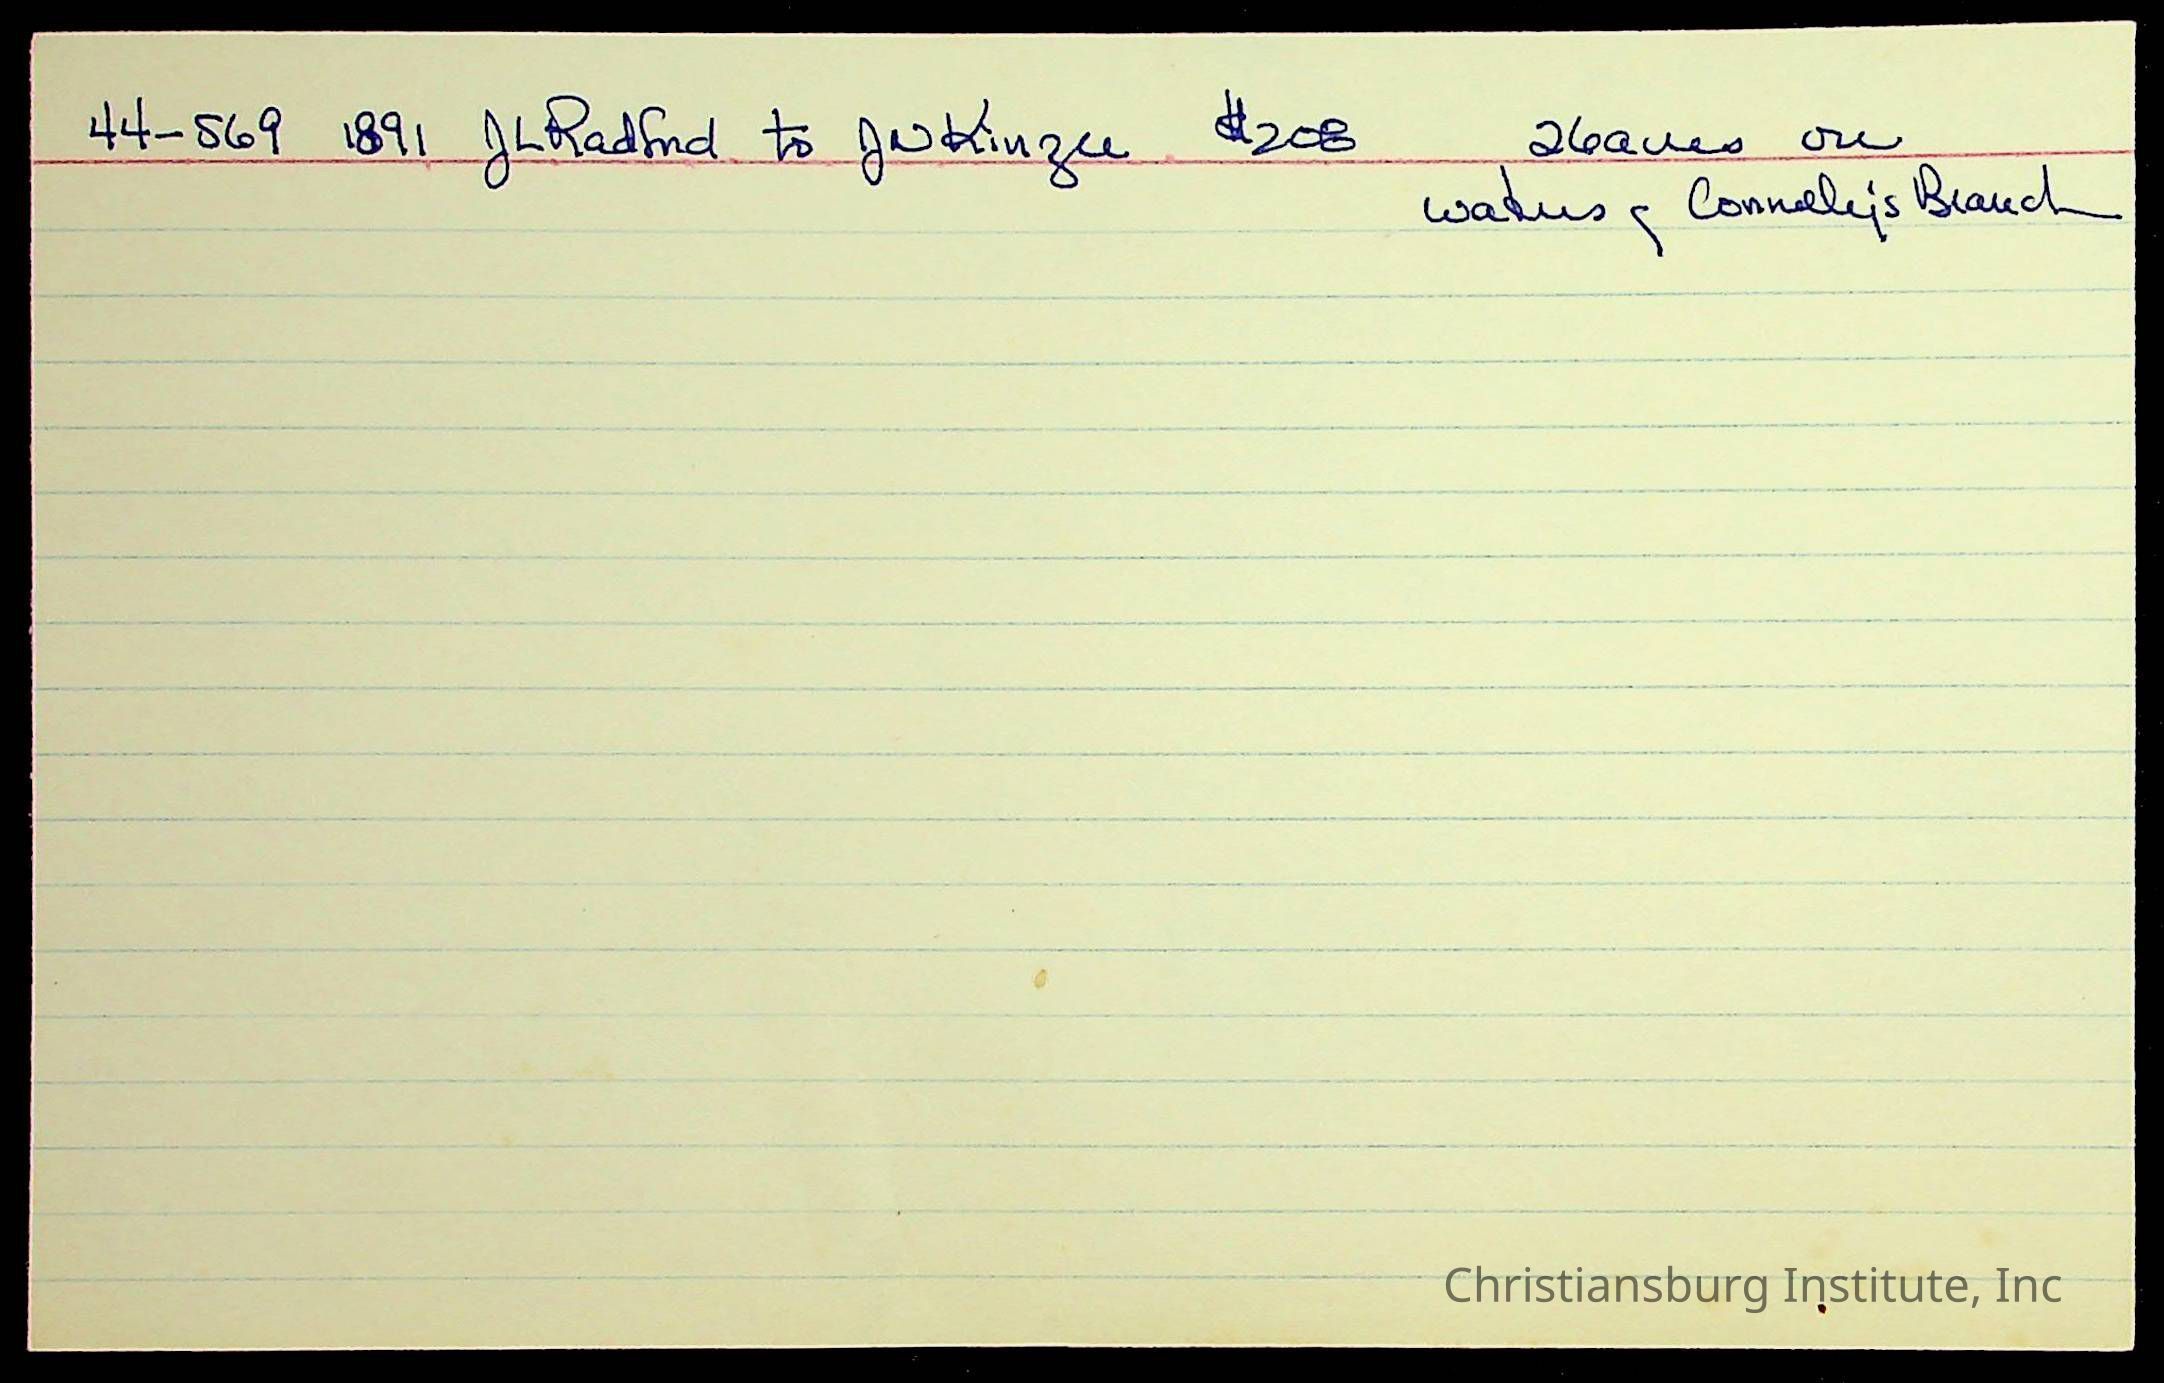 44-569 1891 JL Radford to JW Kinzer $208 26 acres on
waters of Connelly's Branch
Christiansburg Institute, Inc